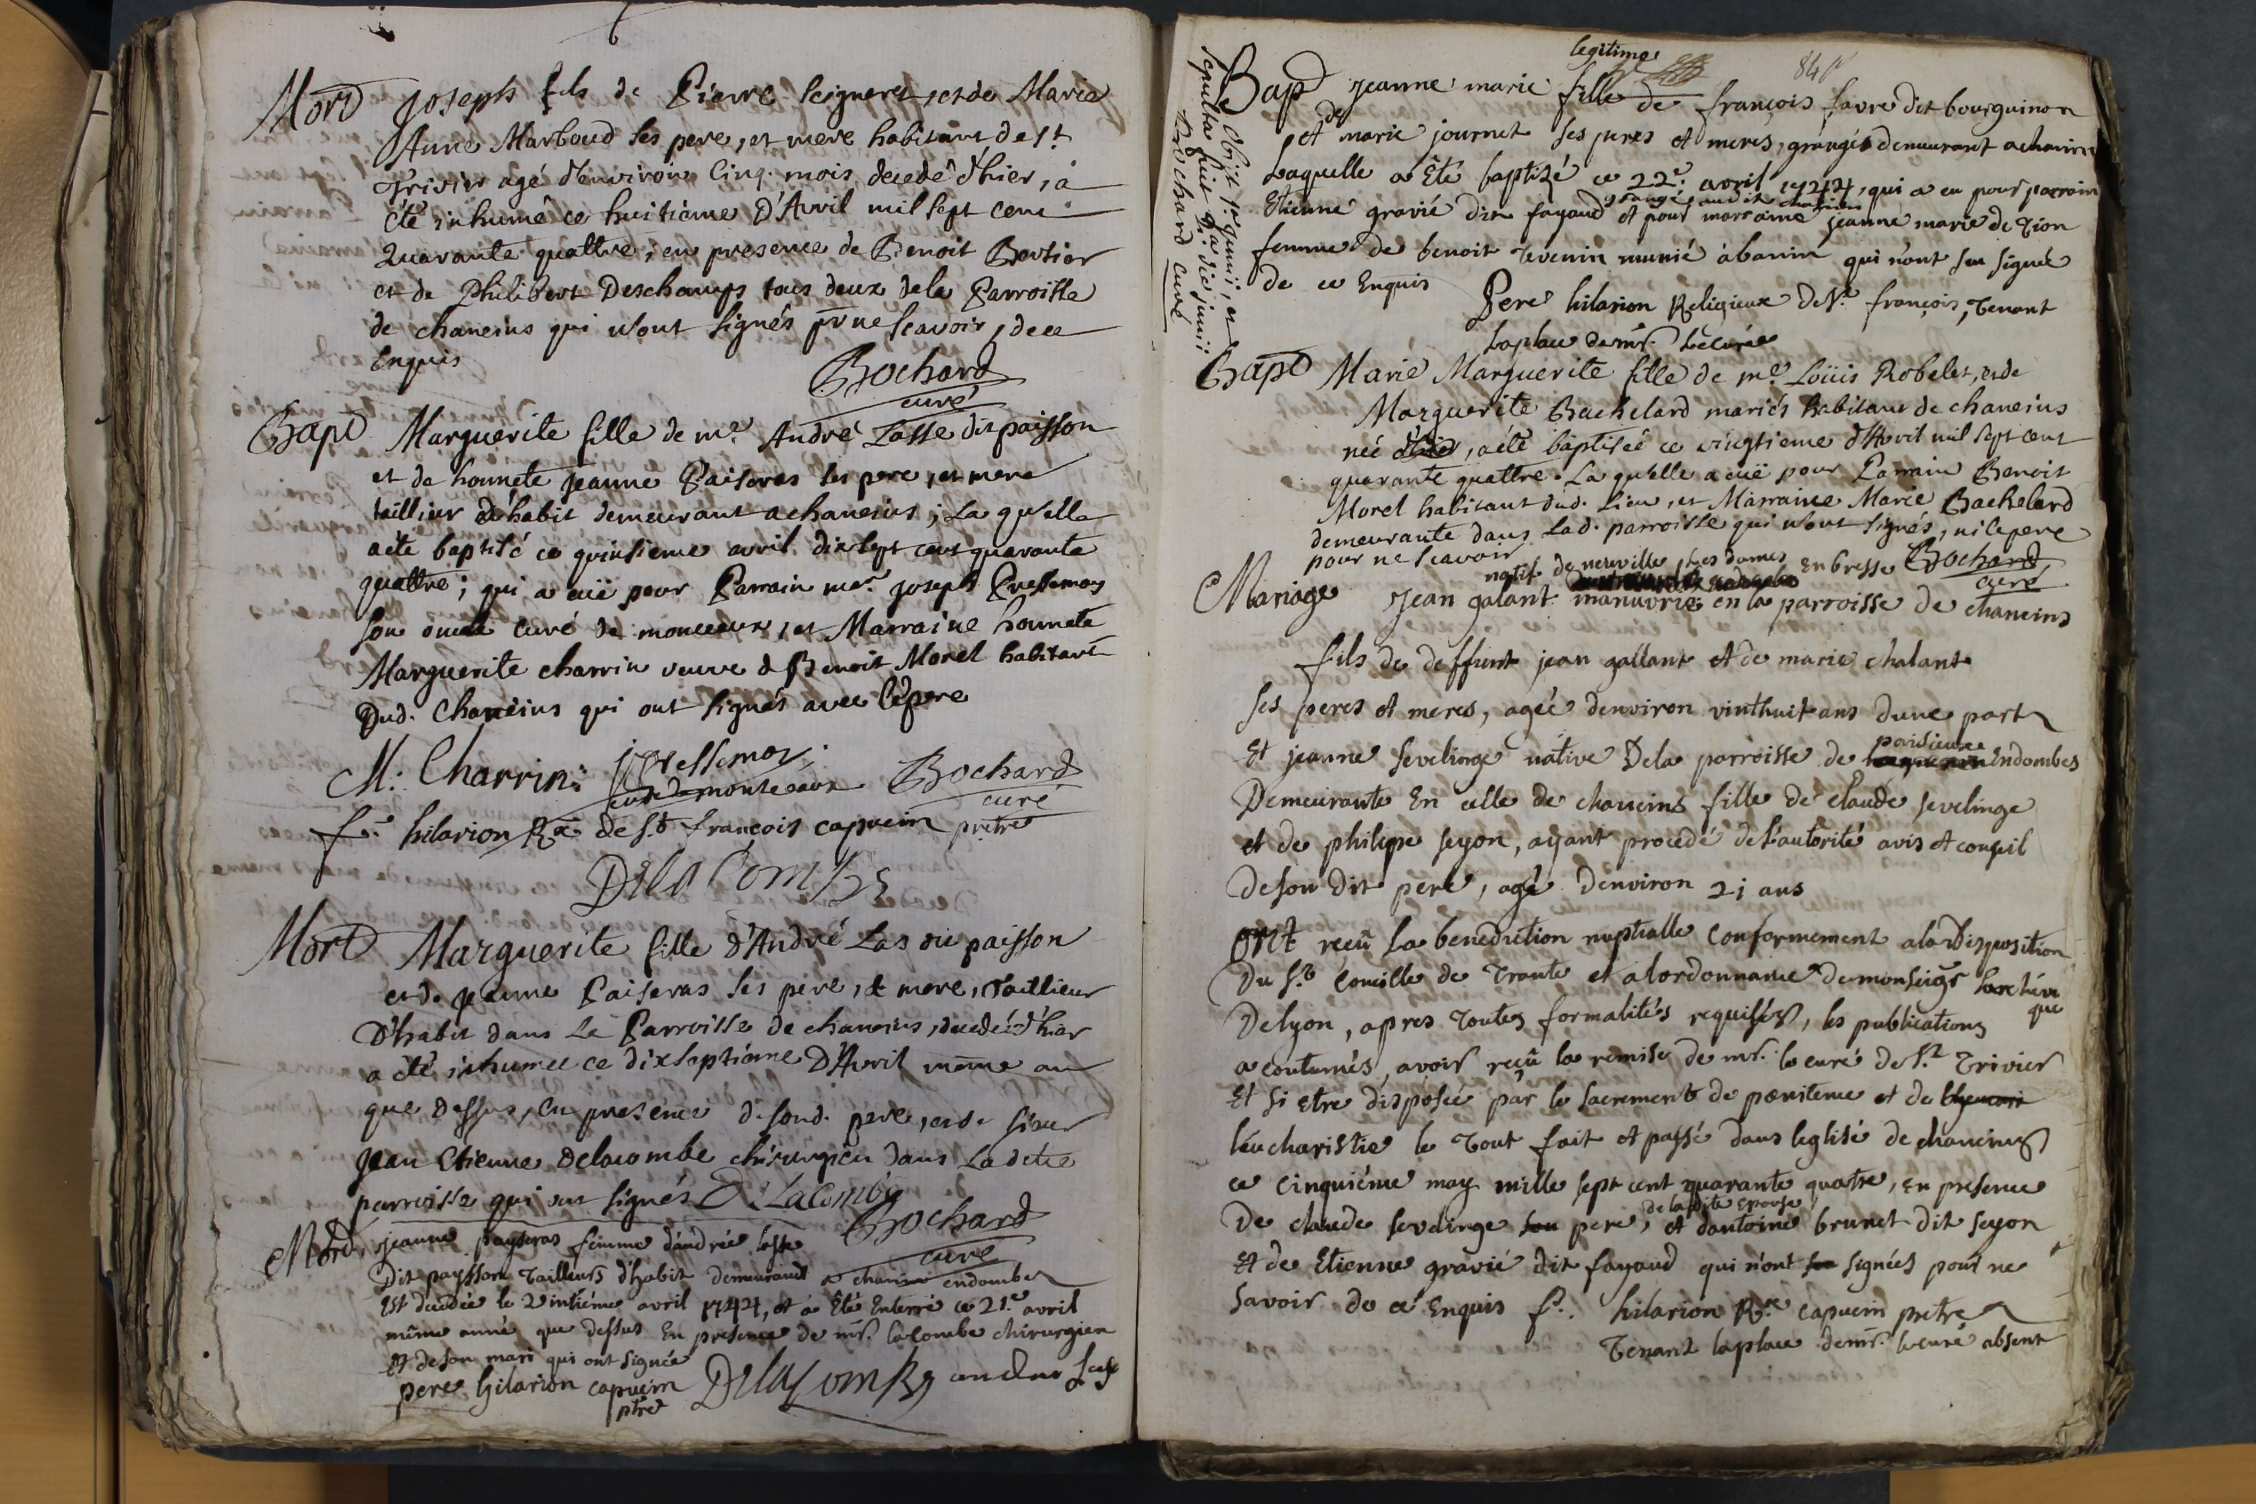 Mort Joseph fils de Pierre Seigneret, et de Marie
Anne Marboud ses pere, et mere habitant de st
Trivier agé d'environ Cinq mois, decedé d'hier, a
été inhumé ce huitième D'Avril mil sept cent
Quarante quattre, en presence de Benoit Bertier
et de Philibert Deschamps tous deux de la Parroisse
de chaneins qui n'ont signés pr ne scavoir, de ce
Enquis
Bochard
curé
Bapt Marguerite fille de me. André Lasse dit paisson
et de honnete Jeanne Paiseras ses pere, et mere
taillieur d'habit demeurant a chaneins, La qu'elle
a été baptisé ce quinsieme avril dix sept cent quarante
quattre; qui a eüe pour Parrain mer. Joseph Pressemoy
son oncle curé de monceaux, et Marraine honnete
Marguerite charrin veuve d Benoit Morel habitant
Dud. Chaneins qui ont signés avec le pere
M. Charrin: J Pressemoy.
curé de monteaux Bochard
curé
f. hilarion Rx de st. françois capucin prêtre
De La Combe
Mort Marguerite fille d'André Las dit paisson
et d. Jeanne Paiseras ses pere, & mere, Taillieur
D'habit dans La Parroisse de chaneins, decedée d'hier
a été inhumée ce dixseptiême D'Avril même an
que dessus, en presence d. son d. pere, et d. sieur
Jean Etienne Delacombe chirurgien dans La ditte
parroisse qui ont signés De LaCombe
Bochard
curé
Mord, jeanne payseras femme d'andrée lasse
Dit paysson Tailleurs d'habit demeurant a chanins endombe
Est decedée le 20 intiéme avril 1744, et a Été Enterré ce 21e. avril
même anné que dessus En presence de mr. lacombe chirurgien
Et de son mari qui ont signée
pere hilarion capucin
ptre
DelaCombe andre lasse
84
legitime
Bap jeanne marie fille de françois favre dit bourguinon
Et de marie journet ses peres et meres, grangés demeurant a chanins
Laquelle a Été baptizé ce 22e. avril 1744, qui a eu pour parrain
grangé audit chanins
Etienne gravié dit fayaud et pour marraine jeanne marie de Tion
femme de benoit Tevenin munié à banin qui n'ont seu signée
de ce Enquis
Pere hilarion Religieux de st. françois, Tenant
La place de mr. Le curée
Obiit 1a. junii, et
sepulta fuit 2a die junii
Bochard curé
Bapt Marie Marguerite fille de me. Loüis Robelet, et de
Marguerite Bachelard mariés habitant de chaneins
née d'hier, a été baptisée ce vingtieme d'Avril mil sept cent
quarante quattre. La qu'elle a eüe pour Parrain Benoit
Morel habitant dud. Lieu, et Marraine Marie Bachelard
demeurante dans Lad. parroisse qui n'ont signés, ni le pere
pour ne scavoir
Bochard
curé
natif de neuville Les dames En bresse
Mariage Jean galant manuvrie en la parroisse de chaneins
fils de deffunt jean gallant et de marie chalant
ses peres et meres, agée d'environ vinthuit ans d'une part
parisieux
Et jeanne sevelinge native De la parroisse de Endombes
Demeurante En celle de chaneins fille de claude sevelinge
et de philipe seyon, ayant procedé de l'autorité avis et conseil
de son dit pere, agé d'environ 21 ans
ont reçû La benediction nuptialle conformement a la Disposition
Du st. Concille de Trante et a l'ordonnance de monseigr l'archeve
que
De lyon, apres Toutes formalités requises, les publications
acoutumés, avoir reçû la remise de mr. le curé de st Trivier
Et si etre disposée par le sacrement de pœnitence et de
l'eucharistie le Tout fait et passé dans leglise de chaneins
ce cinquiéme may mille sept cent quarante quatre, En presence
de la dite epouse
De claude sevelinge son pere, et d'antoine brunet dit seyon
Et de Etienne gravié dit fayaud qui n'ont seu signées pour ne
savoir de ce Enquis f. hilarion Rx. capucin prêtre
Tenant la place de mr. le curé absent